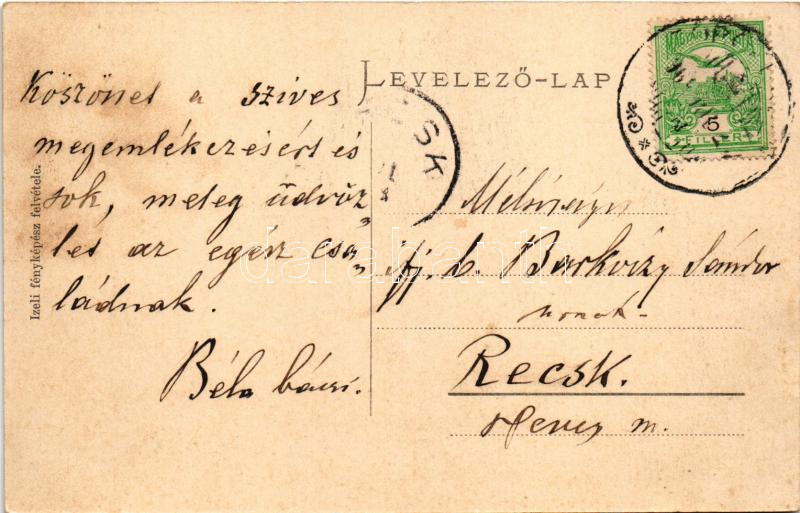 LEVELEZŐ-LAP
Köszönet a szives
megemlékezésért és
sok, meleg üdvöz„
let az egész csa„
ládnak.
Béla bácsi.
Méltóságos
ifj. b. Barkóczy Sándor
urnak
Recsk.
Heves m.
Izeli fényképész felvétele.
MAGYAR
5
FILLÉR
SK
darabanth